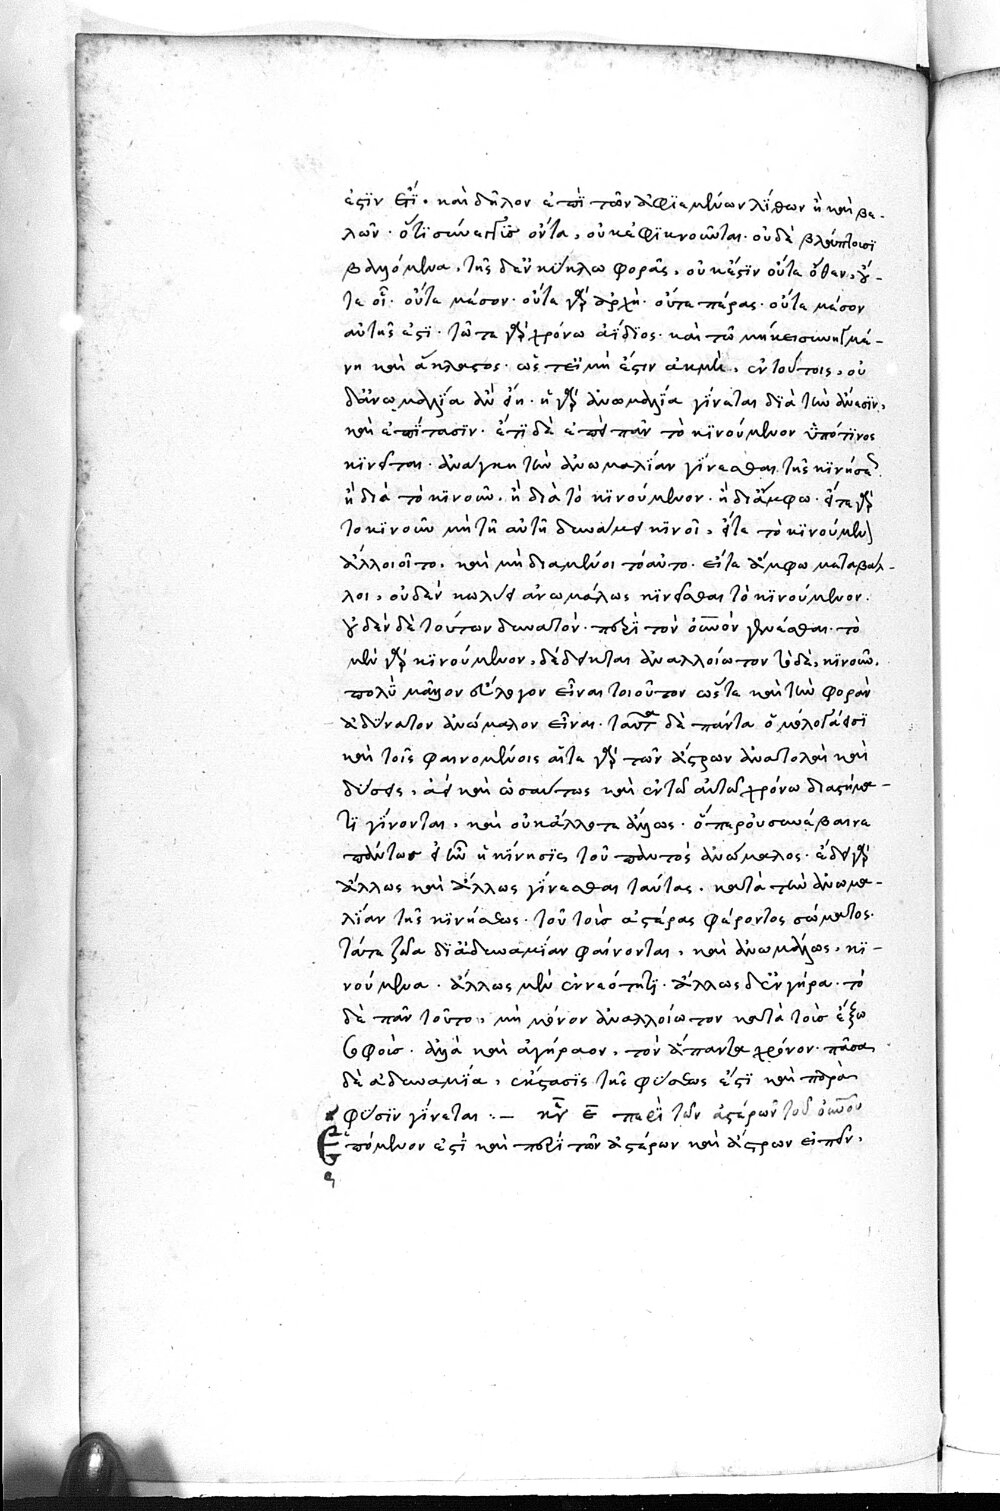 ἐστὶν ἔτι· καὶ δῆλον ἐπὶ τῶν ἀφιεμένων λίθων ἢ καὶ βε-
λῶν· ὅτι ὄντα, οὐκ ἐφικνοῦνται· οὐδὲ
βαλλόμενα, τῆς δ' ἐν κύκλω φορᾶς, οὐκ ἔστιν οὔτε ὅθεν, οὔ-
τε οἷ· οὔτε μέσον· οὔτε γὰρ ἀρχὴ· οὔτε πέρας· οὔτε μέσον
αὐτῆς ἐστὶ· τῶ τε γὰρ χρόνω ἀΐδιος· καὶ τῶ μήκει συνηγμέ-
νη καὶ ἄκλαστος· ὥστ' εἰ μή ἐστιν ἀκμὴ, ἐν τούτοις, οὐ
δ' ἀνωμαλία ἂν εἴη· ἡ γὰρ ἀνωμαλία γίνεται διὰ τὴν ἄνεσιν,
καὶ ἐπίτασιν· ἔτι δὲ ἐπεὶ πᾶν τὸ κινούμενον ὑπό τινος
κινεῖται· ἀνάγκη τὴν ἀνωμαλίαν γίνεσθαι τῆς κινήσεως
ἢ διὰ τὸ κινοῦν· ἢ διὰ τὸ κινούμενον· ἢ δι' ἄμφω· εἴτε γὰρ
τὸ κινοῦν μὴ τῆ αὐτῆ δυνάμει κινοῖ, εἴτε τὸ κινούμενον
ἀλλοιοῖτο, καὶ μὴ διαμένοι τὸ αὐτὸ· εἴτε ἄμφω μεταβάλ-
λοι, οὐδὲν κωλύει ἀνωμάλως κινεῖσθαι τὸ κινούμενον·
οὐδὲν δὲ τούτων δυνατὸν· περὶ τὸν οὐνὸν γενέσθαι· τὸ
μὲν γὰρ κινούμενον, δέδεικται ἀναλλοίωτον τὸ δὲ, κινοῦν,
πολὺ μᾶλλον εὔλογον εἶναι τοιοῦτον ὥστε καὶ τὴν φορὰν
ἀδύνατον ἀνώμαλον εἶναι· ταῦτα δὲ πάντα
καὶ τοῖς φαινομένοις αἵ τε γὰρ τῶν ἄστρων ἀνατολαὶ καὶ
δύσεις, ἀεὶ καὶ ὡσαύτως καὶ ἐν τῶ αὐτῶ χρόνω διαστήμα-
τι γίνονται, καὶ οὐκ ἄλλοτε ἄλλως· ὅπερ οὐ συνέβαινε
πάντως εἰ ἦν ἡ κίνησις τοῦ παντὸς ἀνώμαλος· ἔδει γὰρ
ἄλλως καὶ ἄλλως γίνεσθαι ταύτας· κατὰ τὴν ἀνωμα-
λίαν τῆς κινήσεως· τοῦ τοὺς ἀστέρας φέροντος σώματος·
τά τε ζῶα δι' ἀδυναμίαν φαίνονται, καὶ ἀνωμάλως, κι-
νούμενα· ἄλλως μὲν ἐν νεότητι· ἄλλως δ' ἐν γήρα· τὸ
δὲ πᾶν τοῦτο, μὴ μόνον ἀναλλοίωτον κατὰ τοὺς ἔξω
σοφοὺς· ἀλλὰ καὶ ἀγήραον, τὸν ἅπαντα χρόνον· πᾶσα
δὲ ἀδυναμία, ἔκστασις τῆς φύσεώς ἐστι καὶ παρὰ
φύσιν γίνεται :— κεφ ε̄ περὶ τῶν ἀστέρων τοῦ οὐνοῦ
Ἑπόμενον ἐστὶ καὶ περὶ τῶν ἀστέρων καὶ ἄστρων εἰπεῖν,